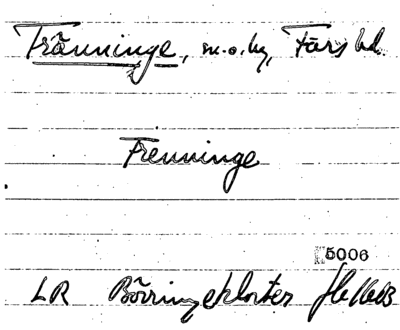 Tränninge, m.o.by, Färs hd.
Trenninge
5006
LR Börringekloster